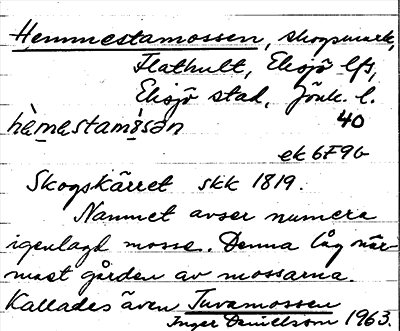 Hemmestamossen, skogsmark,
Flathult, Eksjö lfs,
Eksjö stad, Jönk. l.
hèmestamå̀sən 40
ek 6F9b
Skogskärret skk 1819.
Namnet avser numera
igenlagd mosse. Denna låg när-
mast gården av mossarna.
Kallades även Tuvamossen
Inger Danielson 1963.